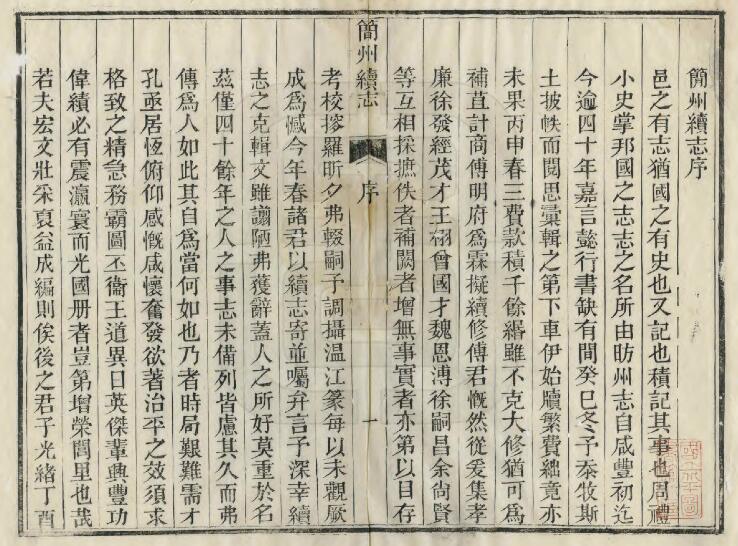 簡州續志序
邑之有志猶國之有史也又記也積記其事也周禮
小史掌邦國之志志之名所由昉州志自咸豐初迄
今逾四十年嘉言懿行書缺有間癸巳冬予忝牧斯
土披帙而閱思彙輯之第下車伊始牘繁費繐竟亦
未果丙申春三費款積千餘緡雖不克大修猶可爲
補苴計商傅明府爲霖擬續修傅君慨然從爰集孝
廉徐發經茂才王翊曾國才魏恩溥徐嗣昌余尙賢
等互相採摭佚者補闕者增無事實者亦第以目存
簡州續志
序
一
考校搜羅昕夕弗輟嗣予調攝温江篆每以未觀厥
成爲憾今年春諸君以續志寄並囑弁言子深幸續
志之克輯文雖譾陋弗獲辭蓋人之所好莫重於名
茲僅四十餘年之人之事志未備列皆慮其久而弗
傳爲人如此其自爲當何如也乃者時局艱難需才
孔亟居恆俯仰感慨咸懷奮發欲著治平之效須求
格致之精急務霸圖丕衞王道異日英傑輩興豐功
偉績必有震瀛寰而光國册者豈第增榮閭里也哉
若夫宏文壯采裒益成編則俟後之君子光緒丁酉